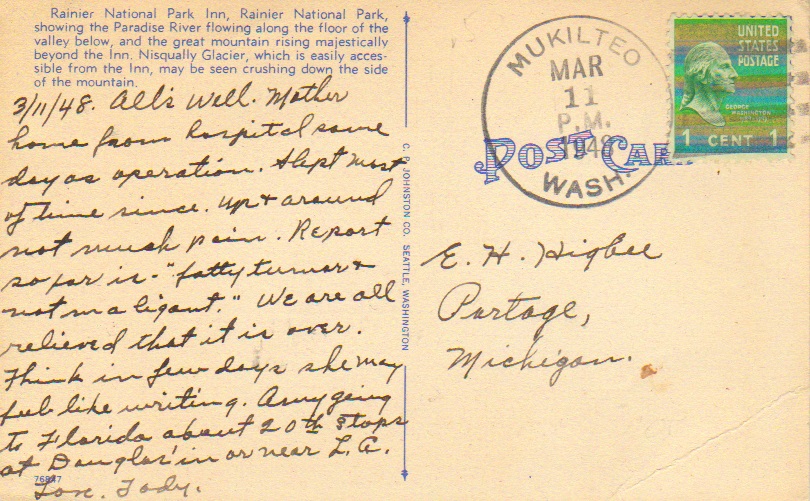 Rainier National Park Inn, Rainier National Park,
showing the Paradise River flowing along the floor of the
valley below, and the great mountain rising majestically
beyond the Inn. Nisqually Glacier, which is easily acces-
sible from the Inn, may be seen crushing down the side
of the mountain.
3/11/48. All's Well. Mother
home from hospital same
day as operation. Slept most
of time since. Up & around
not much pain. Report
so far is - "fatty tumor &
not maligant." We are all
relieved that it is over.
Think in few days she may
feel like writing. Amy going
to Florida about 20th stops
at Douglas' in or near L.A.
76847
C. P. JOHNSTON CO. SEATTLE, WASHINGTON
MUKILTEO
MAR
11
P.M.
1948
WASH.
POST CARD
UNITED
STATES
POSTAGE
GEORGE
WASHINGTON
1 CENT 1
E. H. Higbee
Portage,
Michigan.